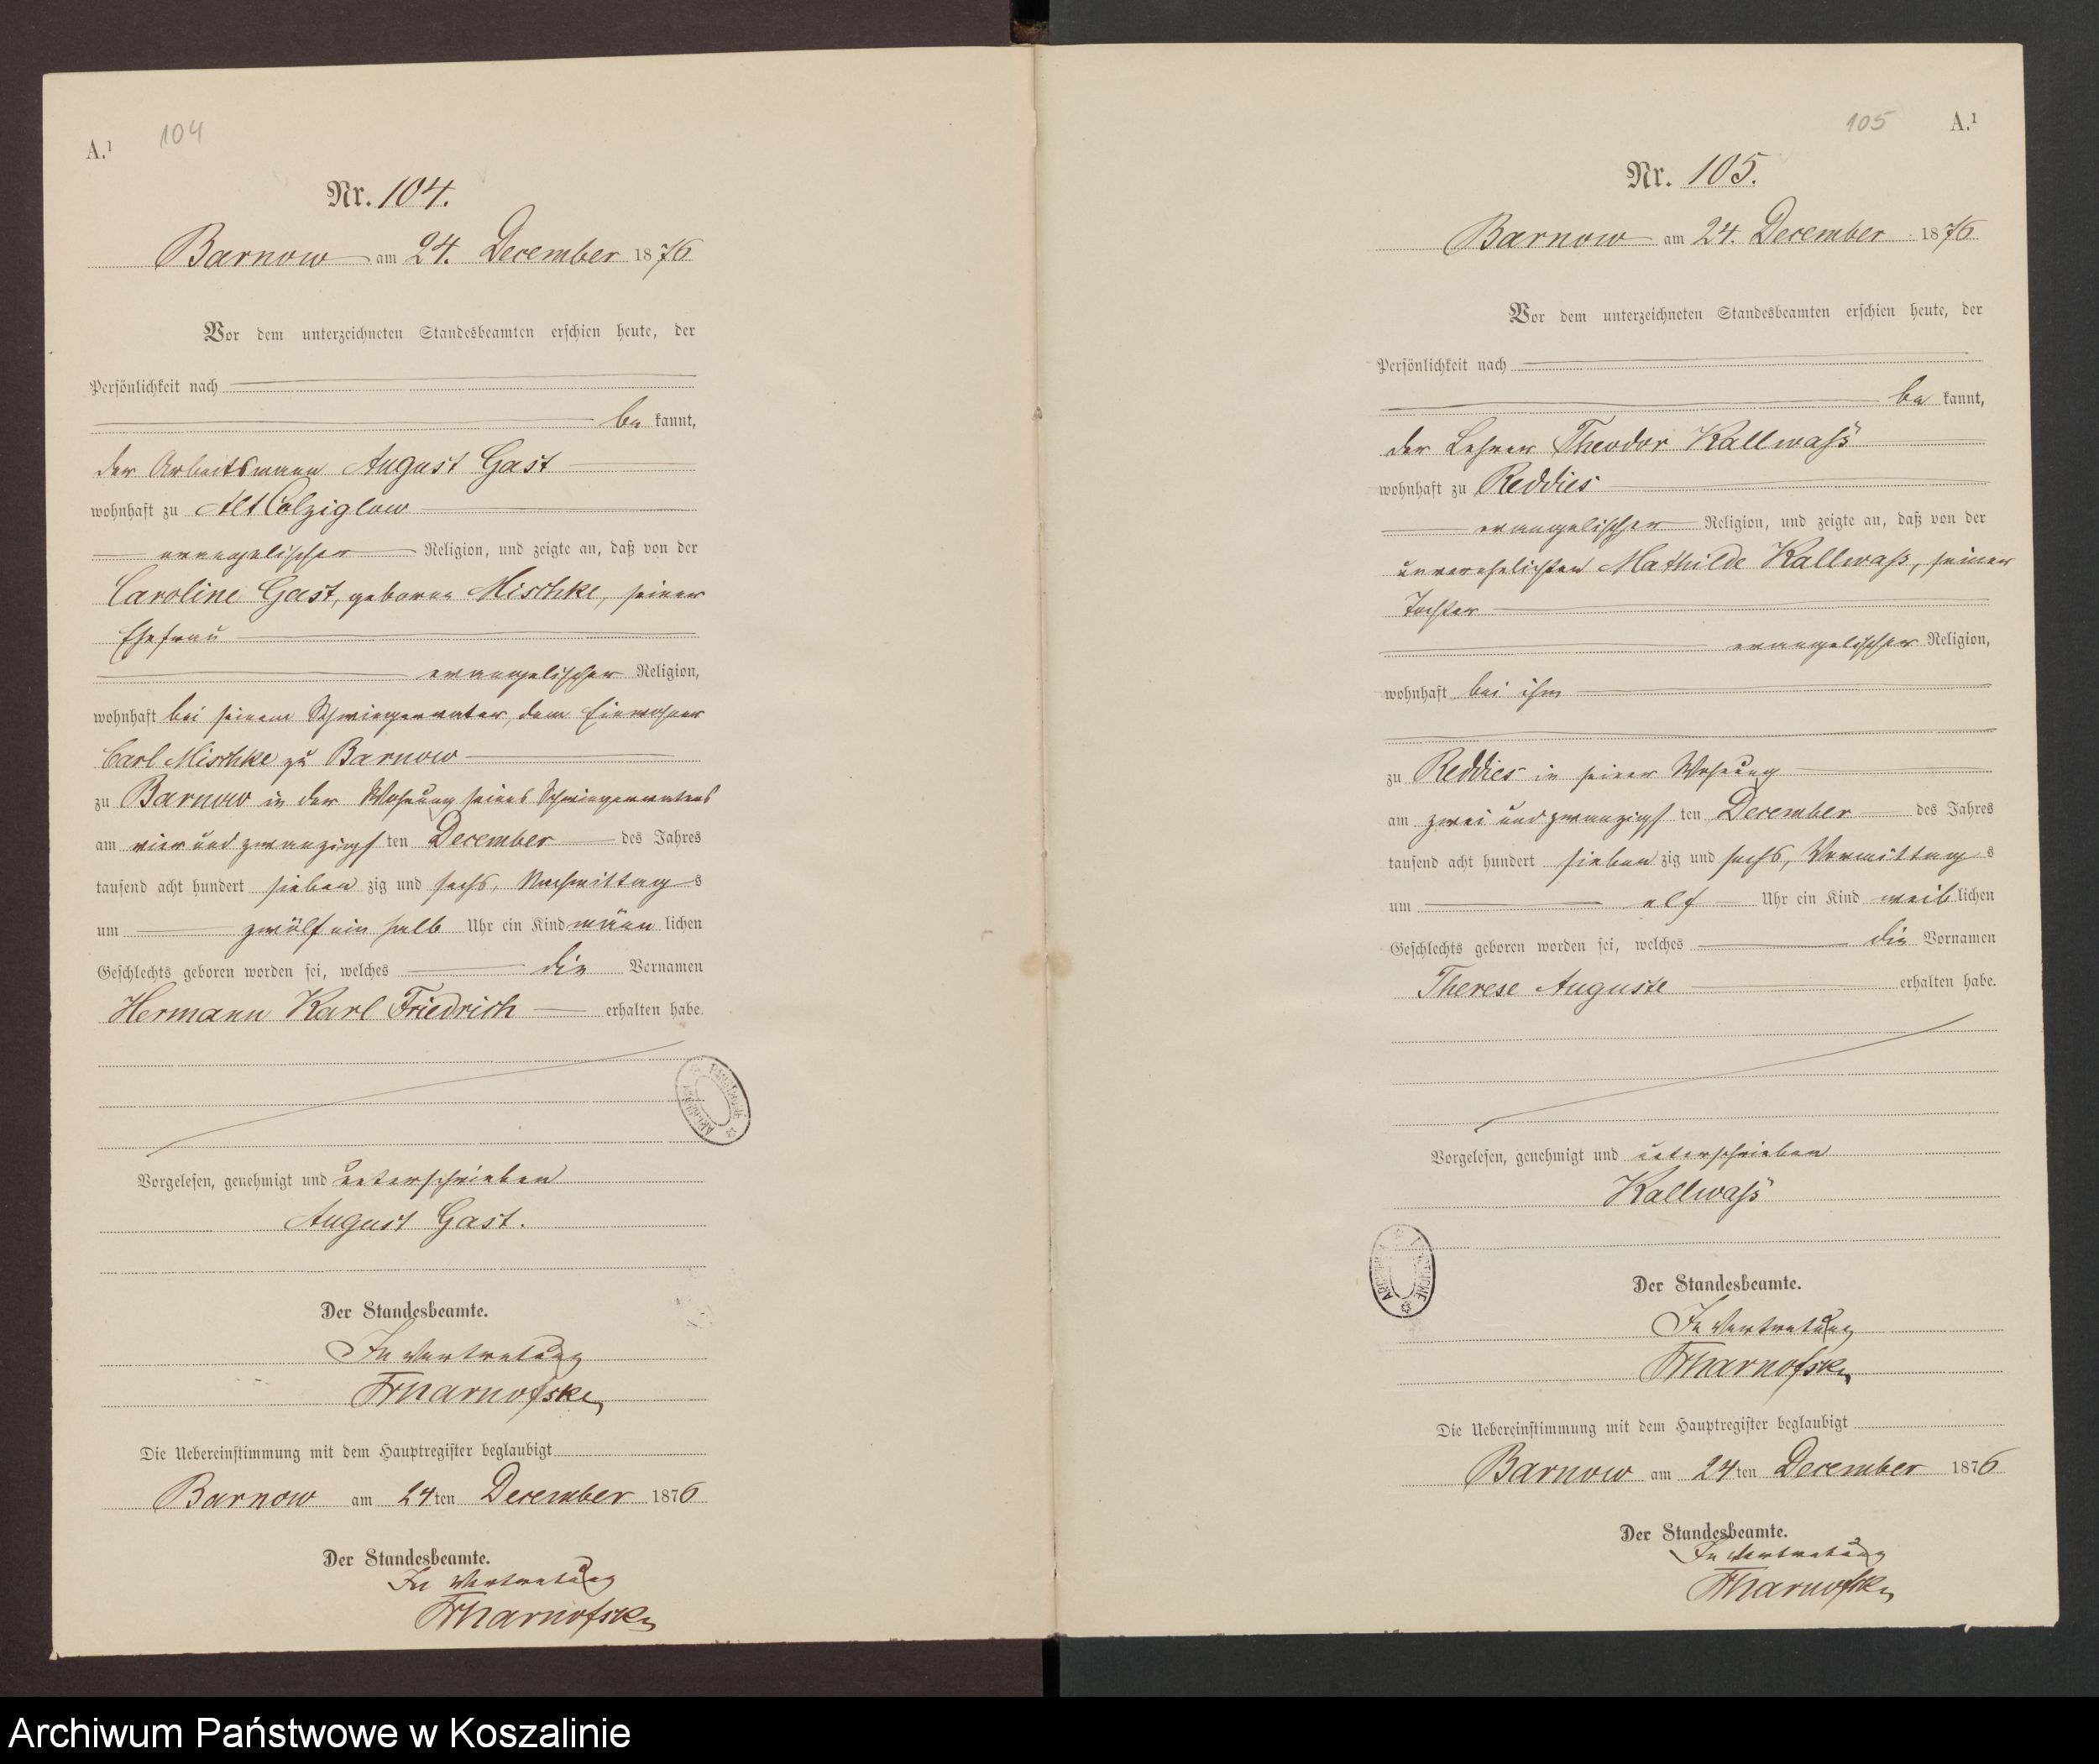 A.¹ 104
Nr. 104.
Barnow am 24. December 1876
Vor dem unterzeichneten Standesbeamten erschien heute, der
Persönlichkeit nach
be kannt,
der Arbeitsmann August Gast
wohnhaft zu Alt Colziglow
evangelischer Religion, und zeigte an, daß von der
Caroline Gast, geborne Mischke, seiner
Ehefrau
evangelischer Religion,
wohnhaft bei seinem Schwiegervater, dem Einwohner
Carl Mischke zu Barnow
zu Barnow in der Wohnung seines Schwiegervaters
am vier und zwanzigs ten December des Jahres
tausend acht hundert sieben zig und sechs, Nachmittag s
um zwölf ein halb Uhr ein Kind männ lichen
Geschlechts geboren worden sei, welches die Vornamen
Hermann Karl Friedrich erhalten habe.
Vorgelesen, genehmigt und unterschrieben
August Gast.
Der Standesbeamte.
In Vertretung
Die Uebereinstimmung mit dem Hauptregister beglaubigt
Barnow am 24ten December 1876
Der Standesbeamte.
In Vertretung
105 A.¹
Nr. 105.
Barnow am 24. December 1876
Vor dem unterzeichneten Standesbeamten erschien heute, der
Persönlichkeit nach
be kannt,
der Lehrer Theodor Kallwaß
wohnhaft zu Reddies
evangelischer Religion, und zeigte an, daß von der
unverehelichten Mathilde Kallwaß, seiner
Tochter
evangelischer Religion,
wohnhaft bei ihm
zu Reddies in seiner Wohnung
am zwei und zwanzigs ten December des Jahres
tausend acht hundert sieben zig und sechs, Vormittag s
um elf Uhr ein Kind weib lichen
Geschlechts geboren worden sei, welches die Vornamen
Therese Auguste erhalten habe.
Vorgelesen, genehmigt und unterschrieben
Kallwaß
Der Standesbeamte.
In Vertretung
Die Uebereinstimmung mit dem Hauptregister beglaubigt
Barnow am 24ten December 1876
Der Standesbeamte.
In Vertretung
Archiwum Państwowe w Koszalinie